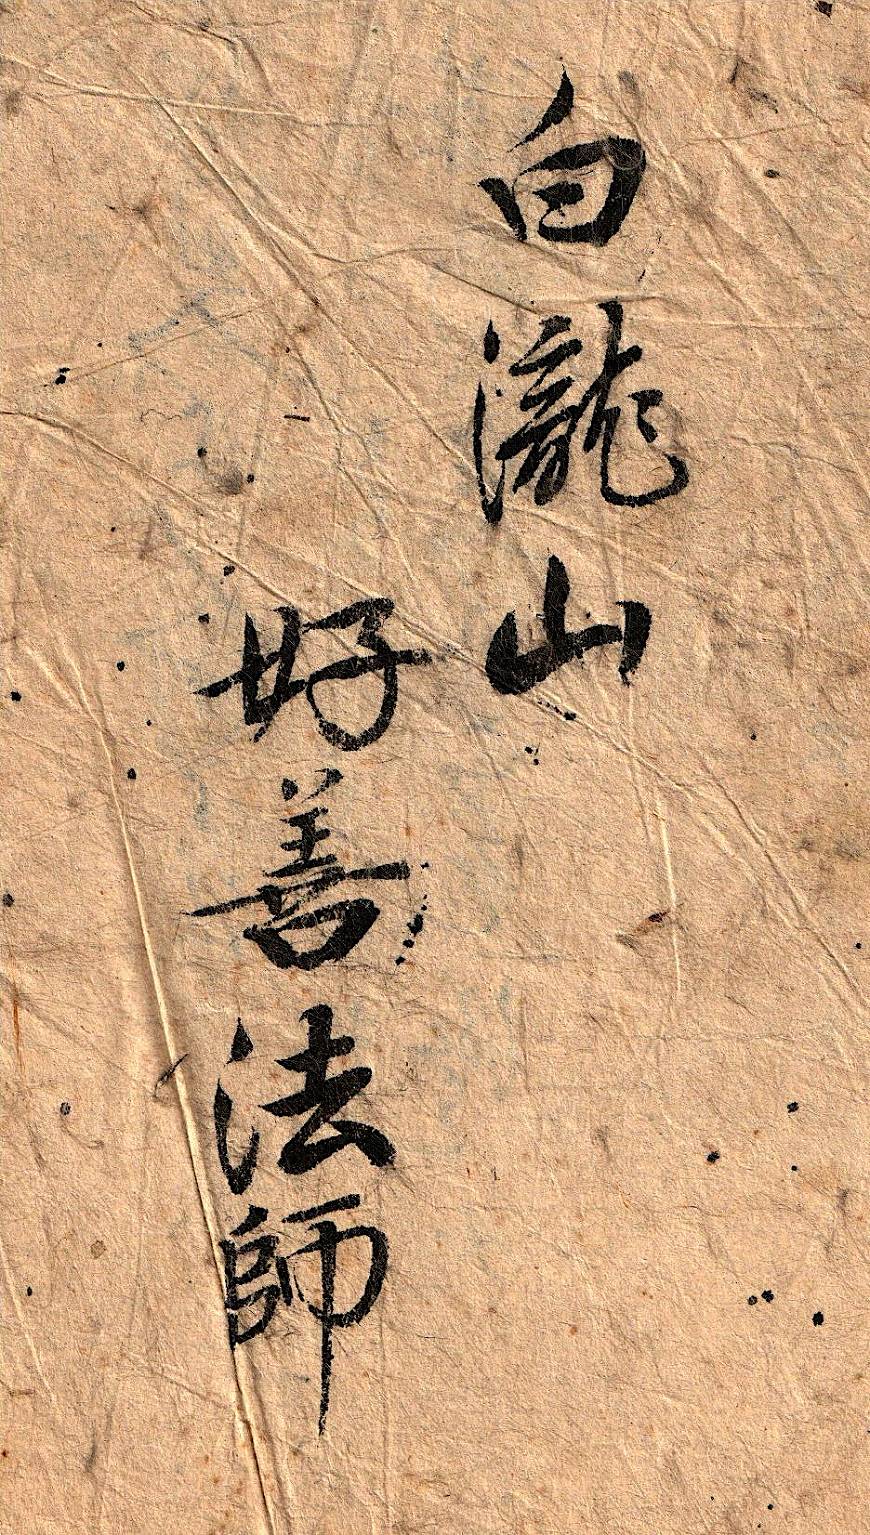 白瀧山
好善法師